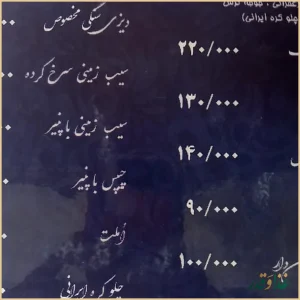 دیزی سنگی مخصوص
۲۲۰/۰۰۰
سیب زمینی سرخ کرده
۱۳۰/۰۰۰
سیب زمینی با پنیر
۱۴۰/۰۰۰
چیپس با پنیر
۹۰/۰۰۰
املت
۱۰۰/۰۰۰
چلو کره ایرانی
چلو کره ایرانی)